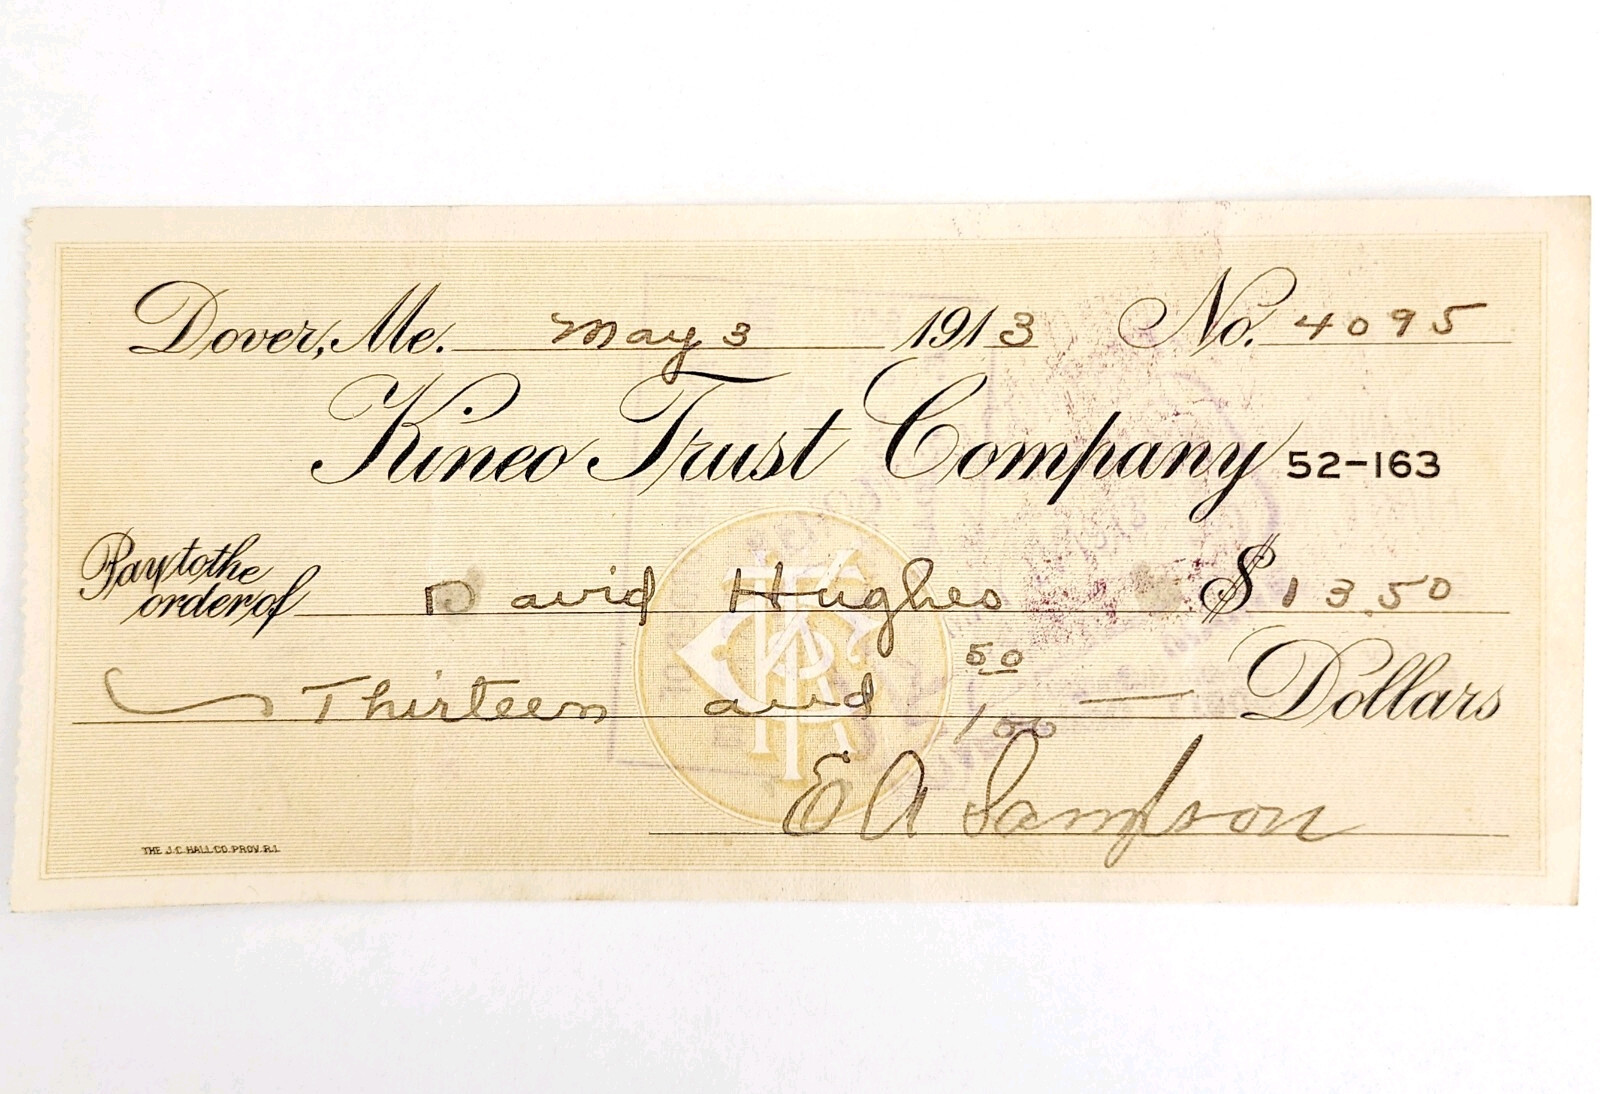 Dover, Me. May 3 1913 No. 4095
Kineo Trust Company 52-163
Pay to the
order of David Hughes $13.50
Thirteen and 50/100 Dollars
E A Sampson
THE J.C. HALL CO. PROV. R.I.